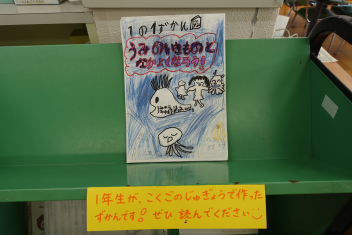 1の1ずかん
うみのいきものと
なかよくなろう!
1年生が、こくごのじゅぎょうで作った
ずかんです!ぜひ読んでください